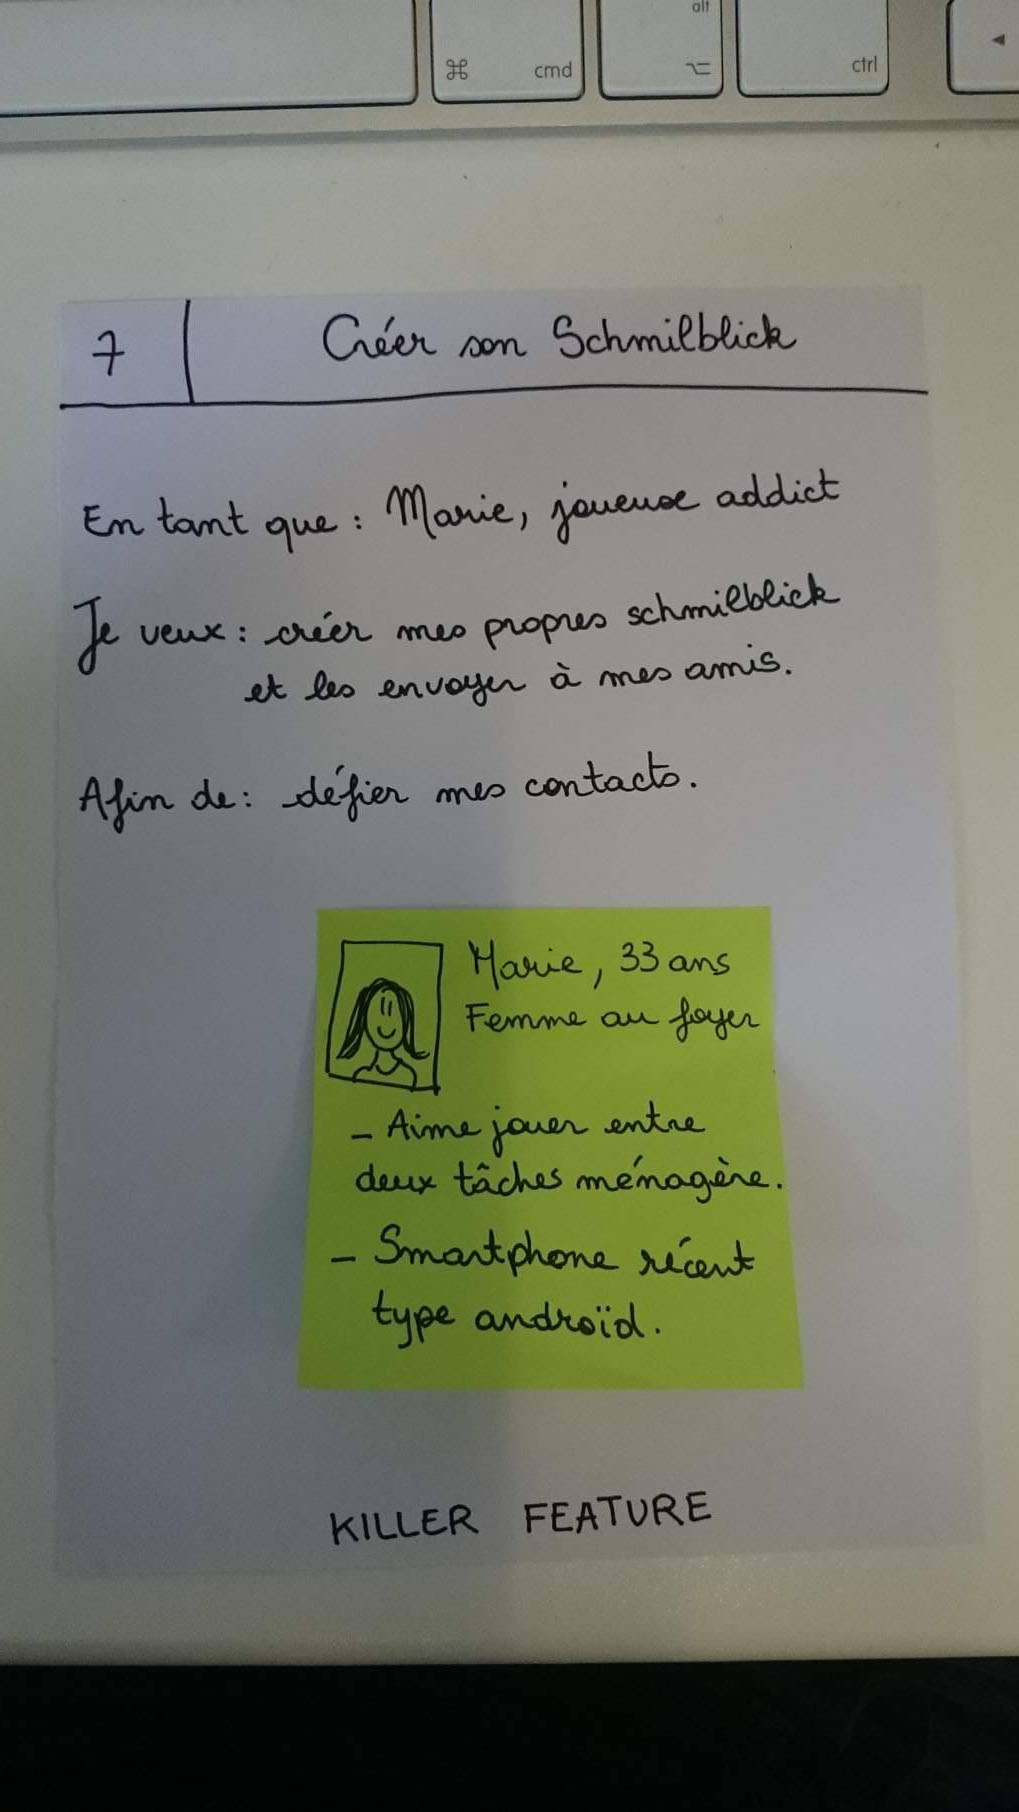 alt
⌘ cmd ⌥ ctrl ◄
7 Créer son Schmilblick
En tant que : Marie, joueuse addict
Je veux : créer mes propres schmilblick
et les envoyer à mes amis.
Afin de : défier mes contacts.
Marie, 33 ans
Femme au foyer
- Aime jouer entre
deux tâches ménagère.
- Smartphone récent
type androïd.
KILLER FEATURE